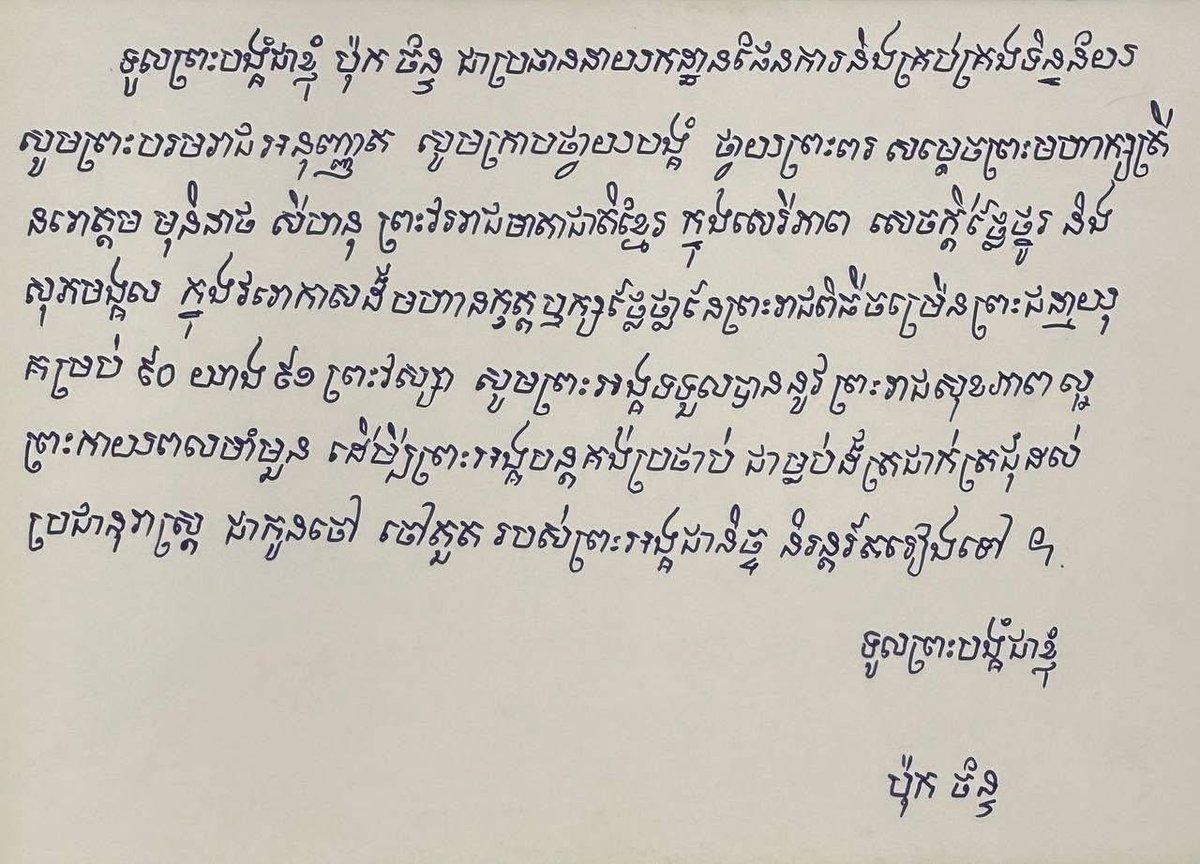 ទូលព្រះបង្គំជាខ្ញុំ ប៉ុក ច័ន្ទ ជាប្រធាននាយកដ្ឋានផែនការនិងគ្រប់គ្រងទិន្នន័យ
សូមព្រះបរមរាជអនុញ្ញាត សូមក្រាបថ្វាយបង្គំ ថ្វាយព្រះពរ សម្តេចព្រះមហាក្សត្រី
នរោត្តម មុនិនាថ សីហនុ ព្រះវររាជមាតាជាតិខ្មែរ ក្នុងសេរីភាព សេចក្តីថ្លៃថ្នូរ និង
សុភមង្គល ក្នុងវរោកាសដ៏មហានក្ខត្តឬក្សថ្លៃថ្លានៃព្រះរាជពិធីចម្រើនព្រះជន្មាយុ
គម្រប់ ៩០ យាង ៩១ ព្រះវស្សា សូមព្រះអង្គទទួលបាននូវព្រះរាជសុខភាពល្អ
ព្រះកាយពលមាំមួន ដើម្បីព្រះអង្គបន្តគង់ប្រថាប់ ជាម្លប់ដ៏ត្រជាក់ត្រជុំដល់
ប្រជានុរាស្ត្រ ជាកូនចៅ ចៅតួត របស់ព្រះអង្គជានិច្ច និរន្តរ៍តរៀងទៅ ។
ទូលព្រះបង្គំជាខ្ញុំ
ប៉ុក ច័ន្ទ